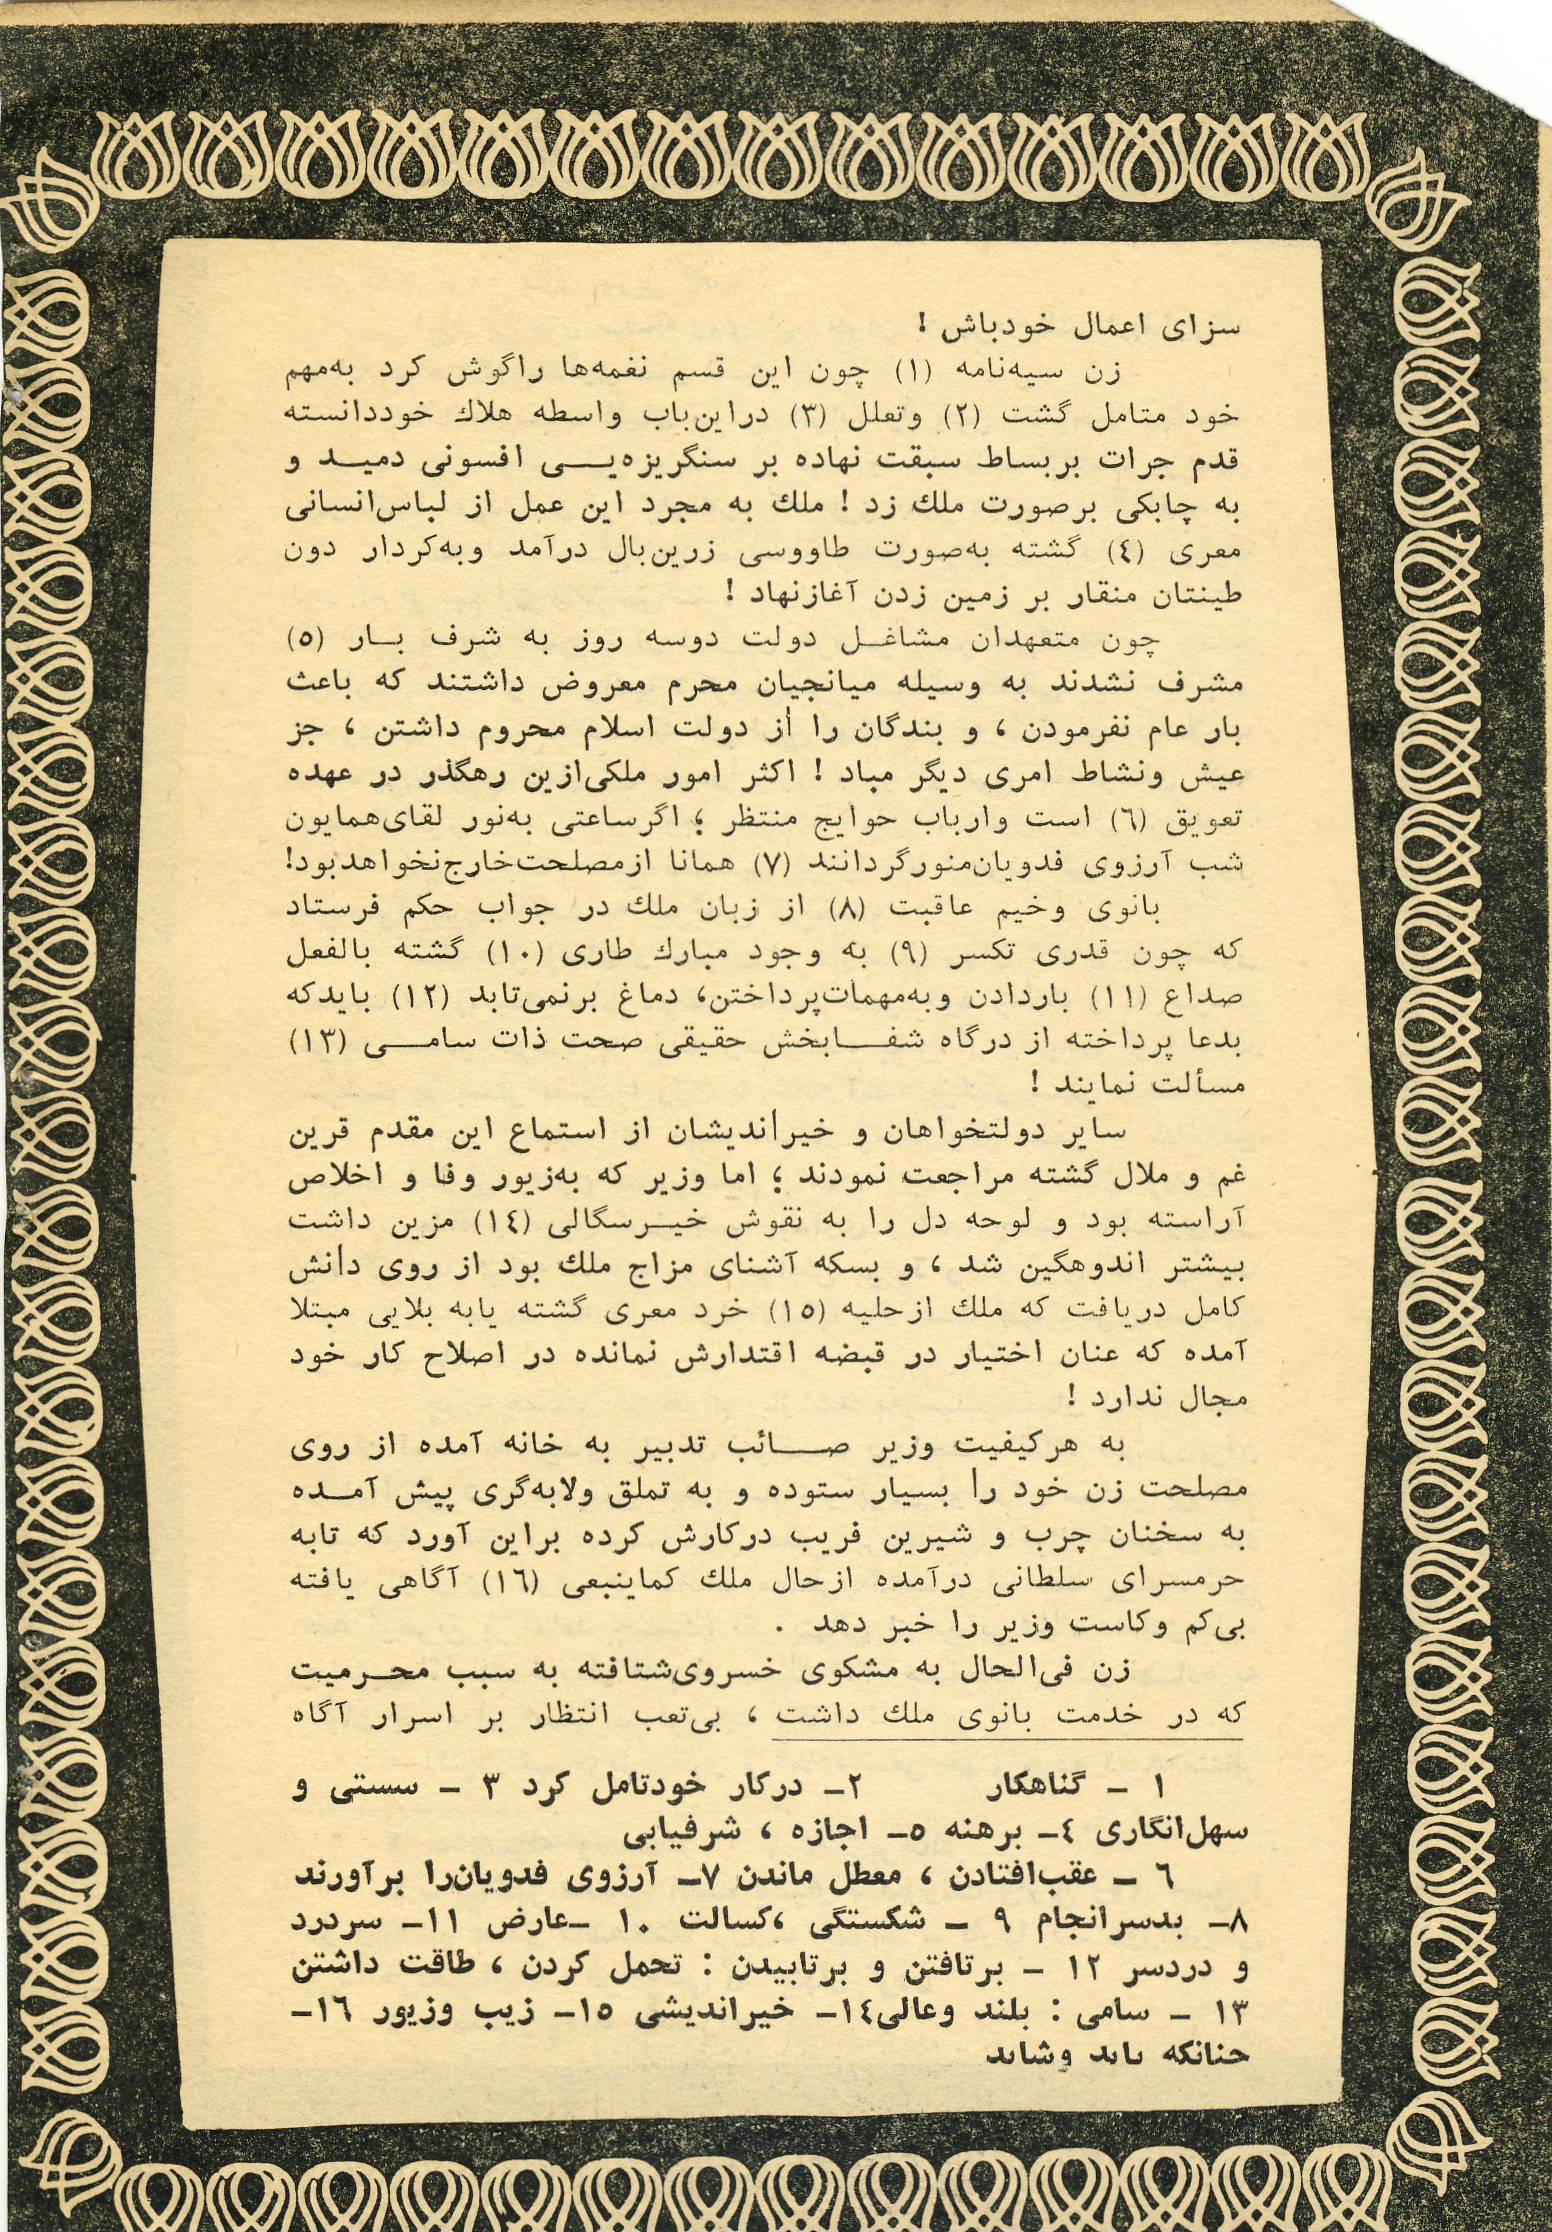 سزای اعمال خودباش !
زن سیه‌نامه (۱) چون این قسم نغمه‌ها راگوش کرد به‌مهم
خود متامل گشت (۲) وتعلل (۳) دراین‌باب واسطه هلاك خوددانسته
قدم جرات بربساط سبقت نهاده بر سنگریزه‌یی افسونی دمید و
به چابکی برصورت ملك زد ! ملك به مجرد این عمل از لباس‌انسانی
معری (٤) گشته به‌صورت طاووسی زرین‌بال درآمد وبه‌کردار دون
طینتان منقار بر زمین زدن آغازنهاد !
چون متعهدان مشاغل دولت دوسه روز به شرف بار (٥)
مشرف نشدند به وسیله میانجیان محرم معروض داشتند که باعث
بار عام نفرمودن ، و بندگان را از دولت اسلام محروم داشتن ، جز
عیش ونشاط امری دیگر مباد ! اکثر امور ملکی‌ازین رهگذر در عهده
تعویق (٦) است وارباب حوایج منتظر ؛ اگرساعتی به‌نور لقای‌همایون
شب آرزوی فدویان‌منورگردانند (۷) همانا ازمصلحت‌خارج‌نخواهدبود!
بانوی وخیم عاقبت (۸) از زبان ملك در جواب حکم فرستاد
که چون قدری تکسر (۹) به وجود مبارك طاری (۱۰) گشته بالفعل
صداع (۱۱) باردادن وبه‌مهمات‌پرداختن، دماغ برنمی‌تابد (۱۲) بایدکه
بدعا پرداخته از درگاه شفابخش حقیقی صحت ذات سامی (۱۳)
مسألت نمایند !
سایر دولتخواهان و خیراندیشان از استماع این مقدم قرین
غم و ملال گشته مراجعت نمودند ؛ اما وزیر که به‌زیور وفا و اخلاص
آراسته بود و لوحه دل را به نقوش خیرسگالی (۱٤) مزین داشت
بیشتر اندوهگین شد ، و بسکه آشنای مزاج ملك بود از روی دانش
کامل دریافت که ملك ازحلیه (۱٥) خرد معری گشته یابه بلایی مبتلا
آمده که عنان اختیار در قبضه اقتدارش نمانده در اصلاح کار خود
مجال ندارد !
به هرکیفیت وزیر صائب تدبیر به خانه آمده از روی
مصلحت زن خود را بسیار ستوده و به تملق ولابه‌گری پیش آمده
به سخنان چرب و شیرین فریب درکارش کرده براین آورد که تابه
حرمسرای سلطانی درآمده ازحال ملك کماینبغی (۱٦) آگاهی یافته
بی‌کم وکاست وزیر را خبر دهد .
زن فی‌الحال به مشکوی خسروی‌شتافته به سبب محرمیت
که در خدمت بانوی ملك داشت ، بی‌تعب انتظار بر اسرار آگاه
۱ – گناهکار ۲– درکار خودتامل کرد ۳ – سستی و
سهل‌انگاری ٤– برهنه ٥– اجازه ، شرفیابی
٦ – عقب‌افتادن ، معطل ماندن ۷– آرزوی فدویان‌را برآورند
۸– بدسرانجام ۹ – شکستگی ،کسالت ۱۰ –عارض ۱۱– سردرد
و دردسر ۱۲ – برتافتن و برتابیدن : تحمل کردن ، طاقت داشتن
۱۳ – سامی : بلند وعالی۱٤– خیراندیشی ۱٥– زیب وزیور ۱٦–
چنانکه باید وشاید